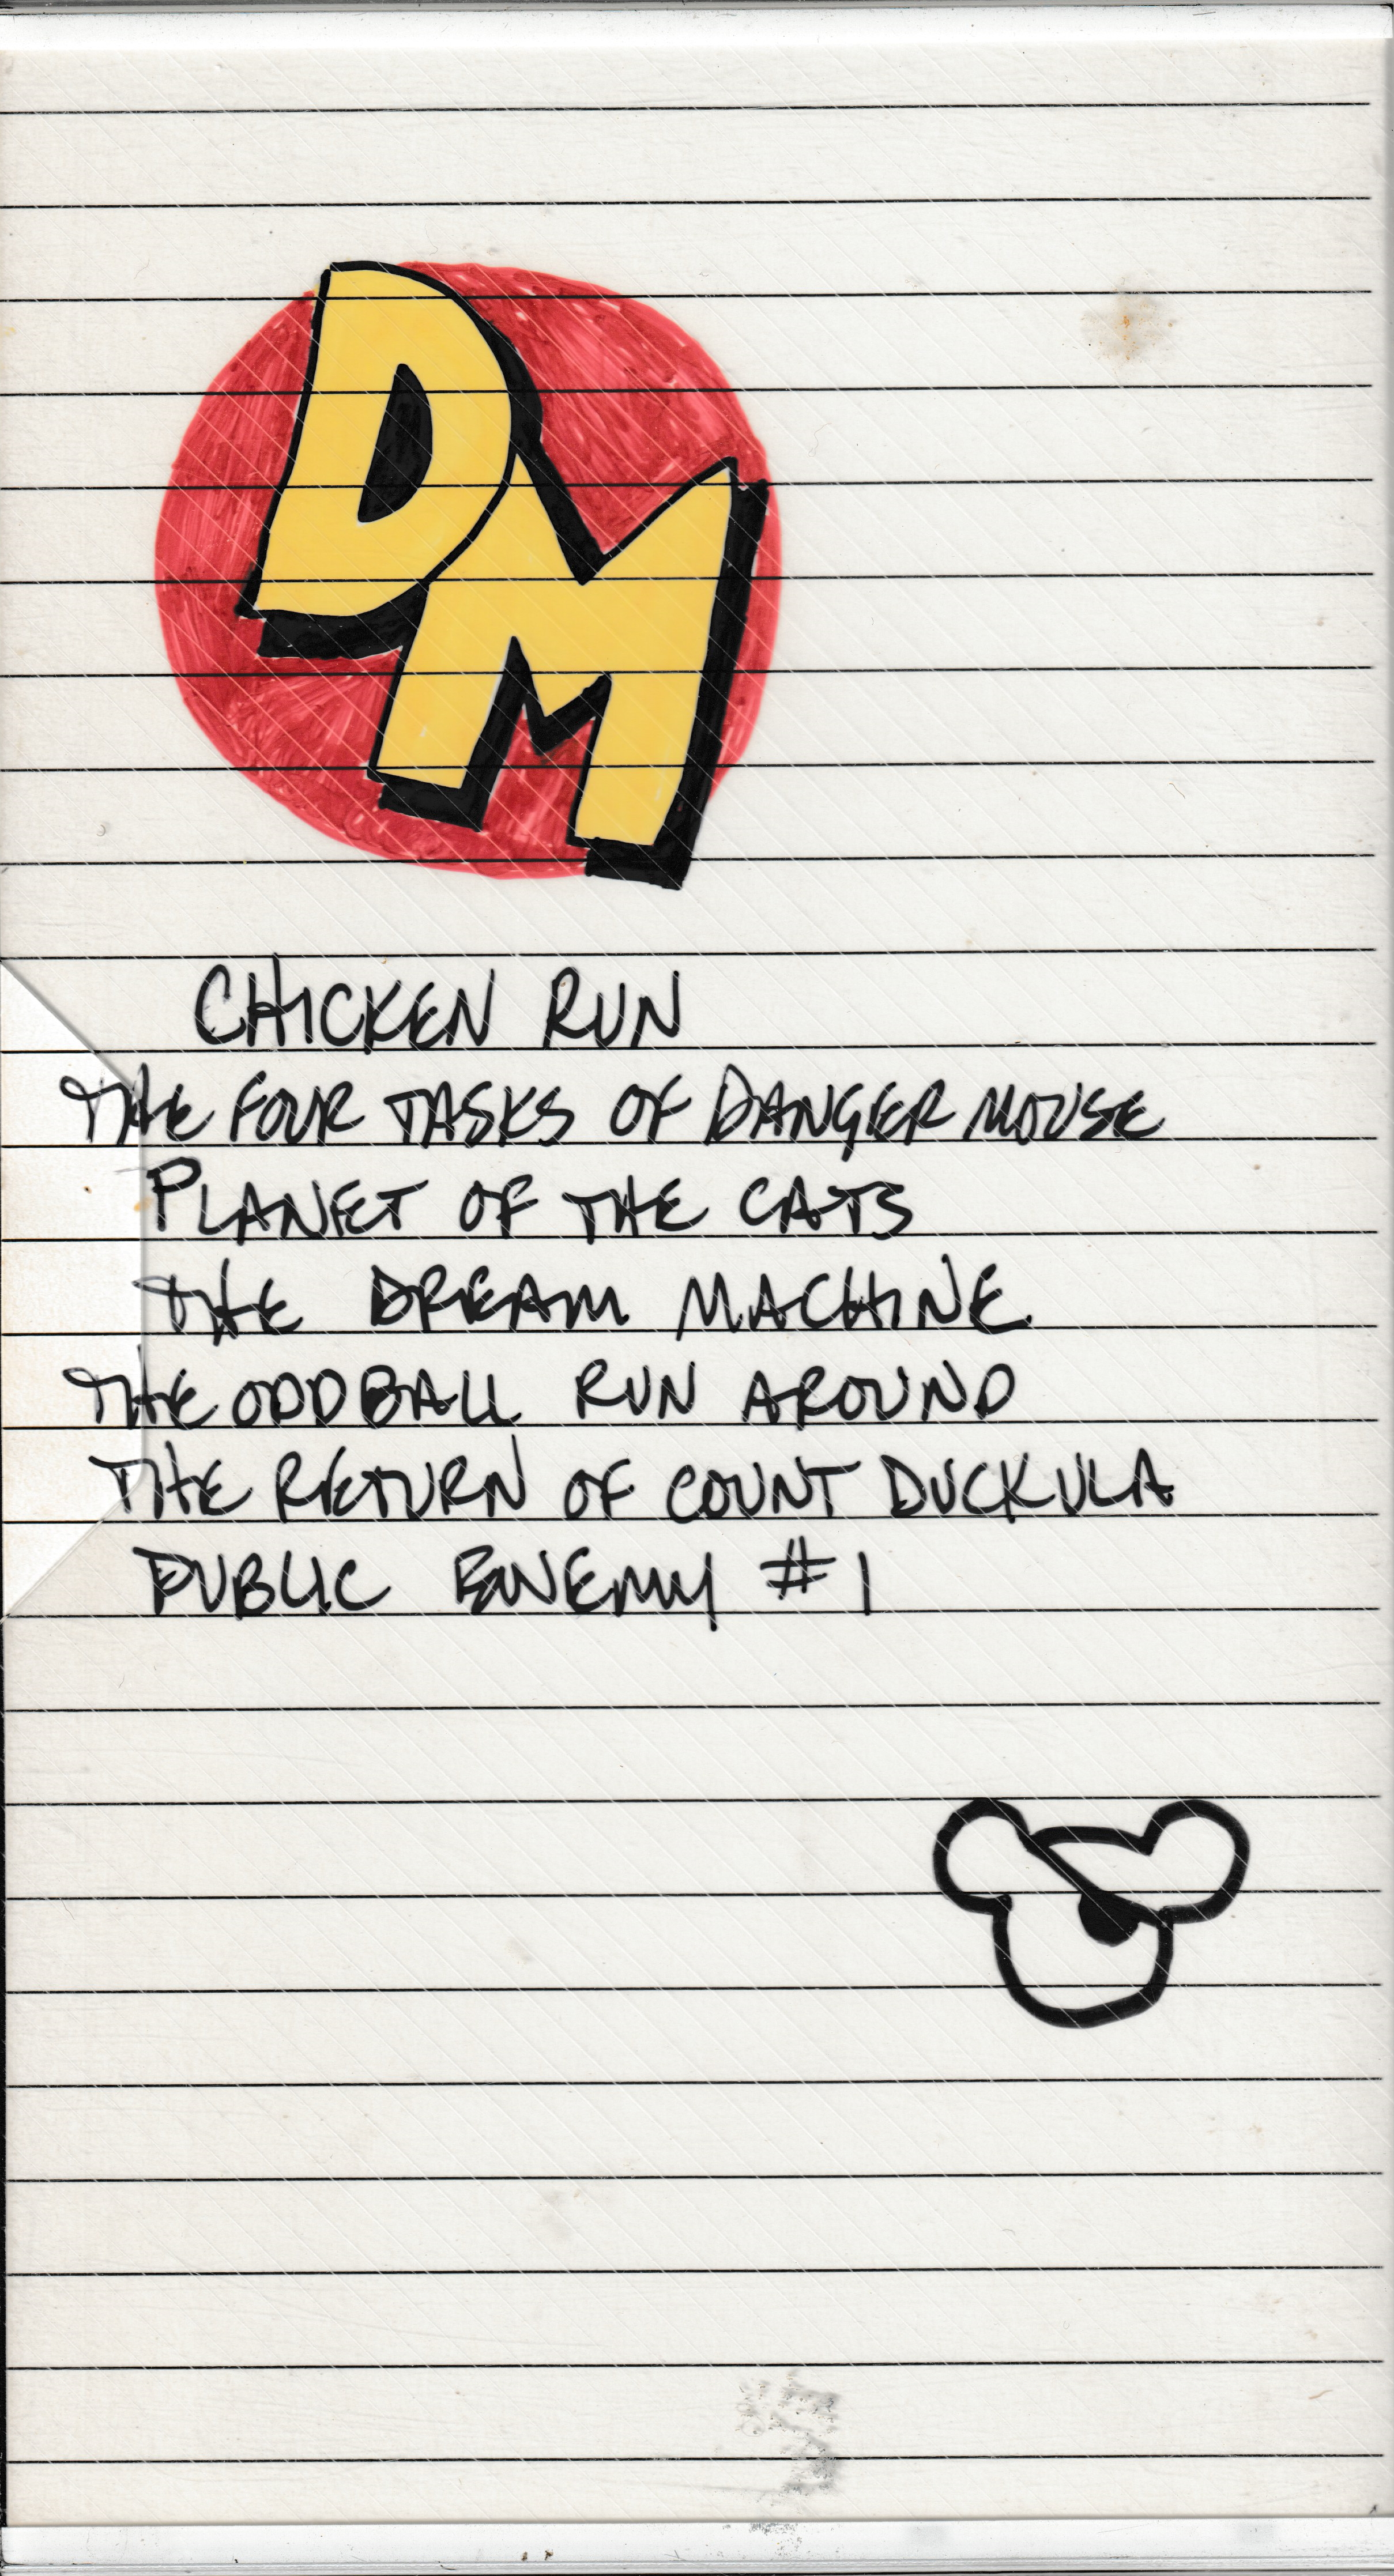 DM
CHICKEN RUN
THE FOUR TASKS OF DANGER MOUSE
PLANET OF THE CATS
THE DREAM MACHINE
THE ODD BALL RUN AROUND
THE RETURN OF COUNT DUCKULA
PUBLIC ENEMY #1